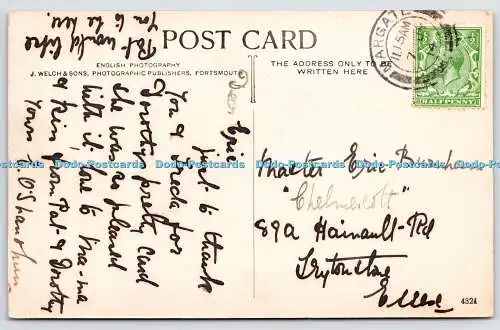 Pat would like
you to be here.
POST CARD
ENGLISH PHOTOGRAPHY
J. WELCH & SONS, PHOTOGRAPHIC PUBLISHERS, PORTSMOUTH
THE ADDRESS ONLY TO BE
WRITTEN HERE
MARGATE
11.15AM
HALFPENNY
Dear Eric
just to thank
you & for
Dorothy pretty card
she was so pleased
with it. love to Ma-ma
& from Pat & Dorothy
yours O'Shaughn
Master Eric
"Chelmescott"
89A Hainault-Rd
Leytonstone
Essex
4324
Dodo-Postcards Dodo-Postcards Dodo-Postcards Dodo-Postcards Dodo-Postcards